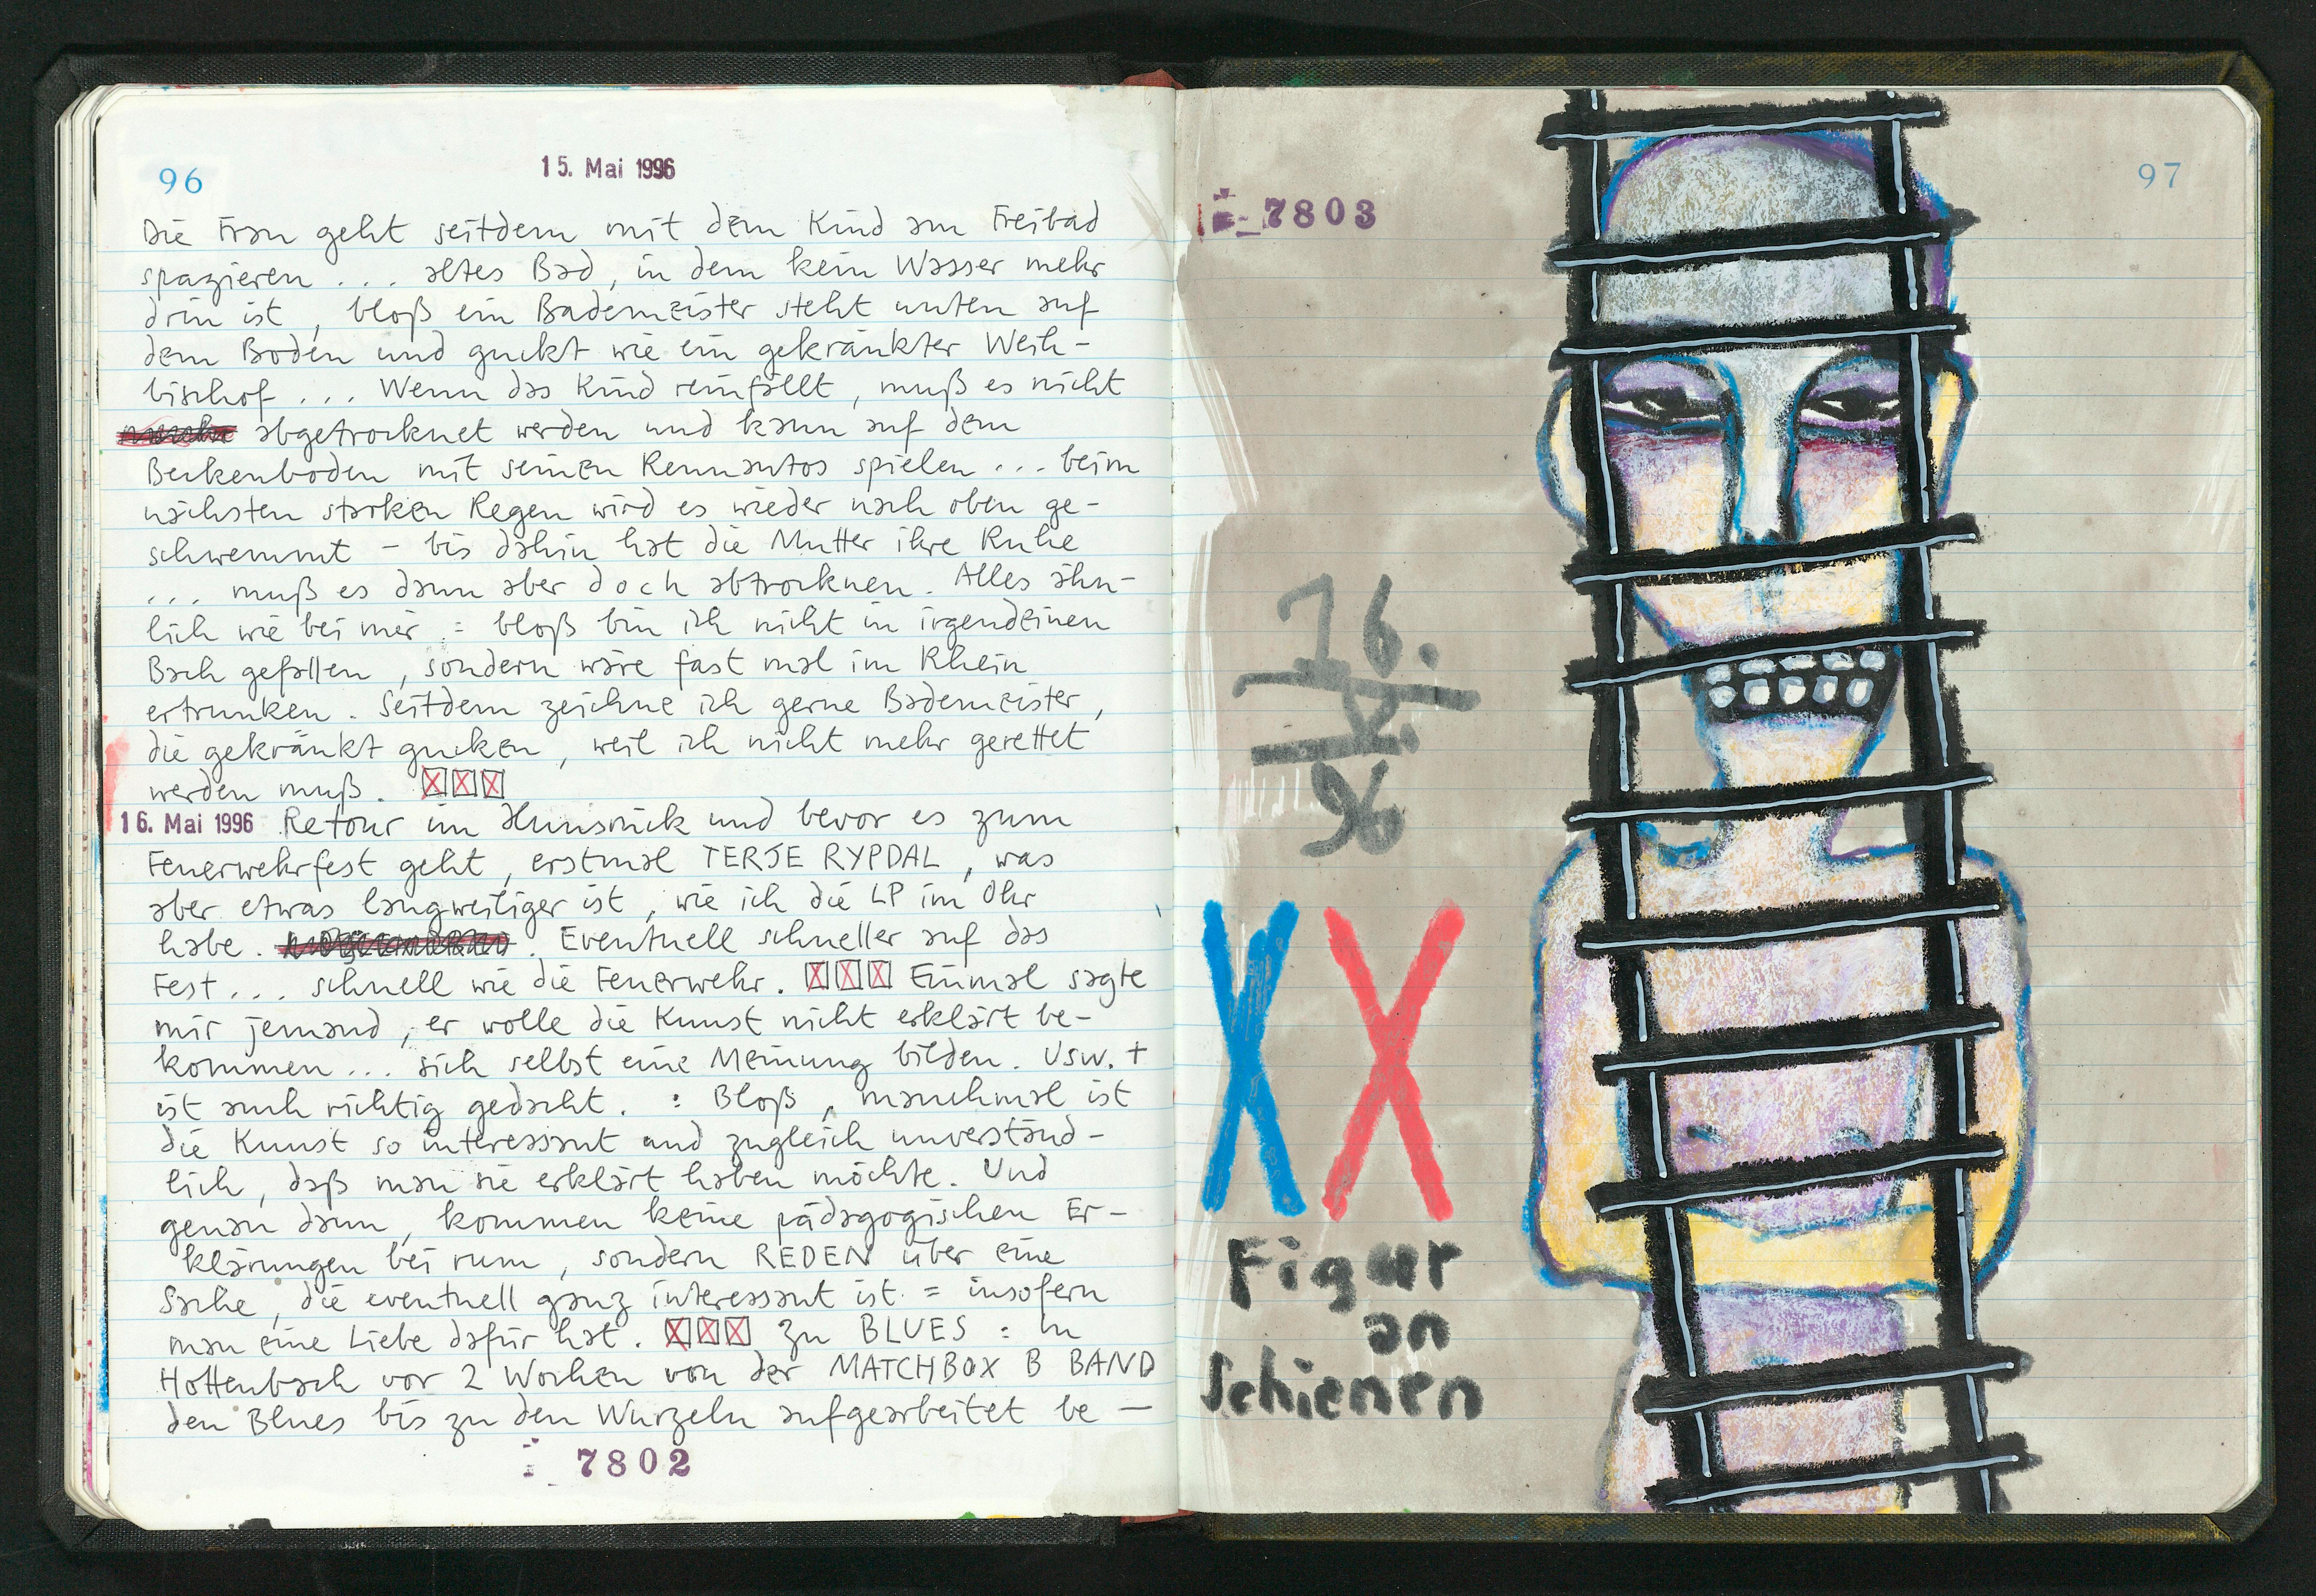 96
15. Mai 1996
Die Frau geht seitdem mit dem Kind am Freibad
spazieren . . . altes Bad, in dem kein Wasser mehr
drin ist, bloß ein Bademeister steht unten auf
dem Boden und guckt wie ein gekränkter Weih-
bischof . . . Wenn das Kind reinfällt, muß es nicht
abgetrocknet werden und kann auf dem
Beckenboden mit seinen Rennautos spielen . . . beim
nächsten starken Regen wird es wieder nach oben ge-
schwemmt – bis dahin hat die Mutter ihre Ruhe
. . . muß es dann aber doch abtrocknen. Alles ähn-
lich wie bei mir := bloß bin ich nicht in irgendeinen
Bach gefallen, sondern wäre fast mal im Rhein
ertrunken. Seitdem zeichne ich gerne Bademeister,
die gekränkt gucken, weil ich nicht mehr gerettet
werden muß. XXX
16. Mai 1996 Retour im Hunsrück und bevor es zum
Feuerwehrfest geht, erstmal TERJE RYPDAL, was
aber etwas langweiliger ist, wie ich die LP im Ohr
habe. . Eventuell schneller auf das
Fest . . . schnell wie die Feuerwehr. XXX Einmal sagte
mir jemand, er wolle die Kunst nicht erklärt be-
kommen . . . sich selbst eine Meinung bilden. Usw. +
ist auch richtig gedacht. : Bloß, manchmal ist
die Kunst so interessant und zugleich unverständ-
lich, daß man sie erklärt haben möchte. Und
genau dann, kommen keine pädagogischen Er-
klärungen bei rum, sondern REDEN über eine
Sache, die eventuell ganz interessant ist = insofern
man eine Liebe dafür hat. XXX Zu BLUES : In
Hottenbach vor 2 Wochen von der MATCHBOX B BAND
den Blues bis zu den Wurzeln aufgearbeitet be –
7802
97
7803
16.
V.
96
XX
Figur
an
Schienen